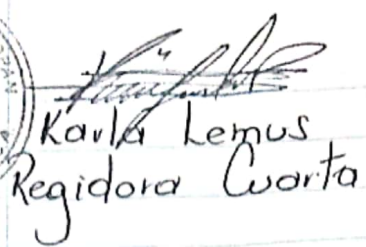 Karla Lemus
Regidora Cuarta